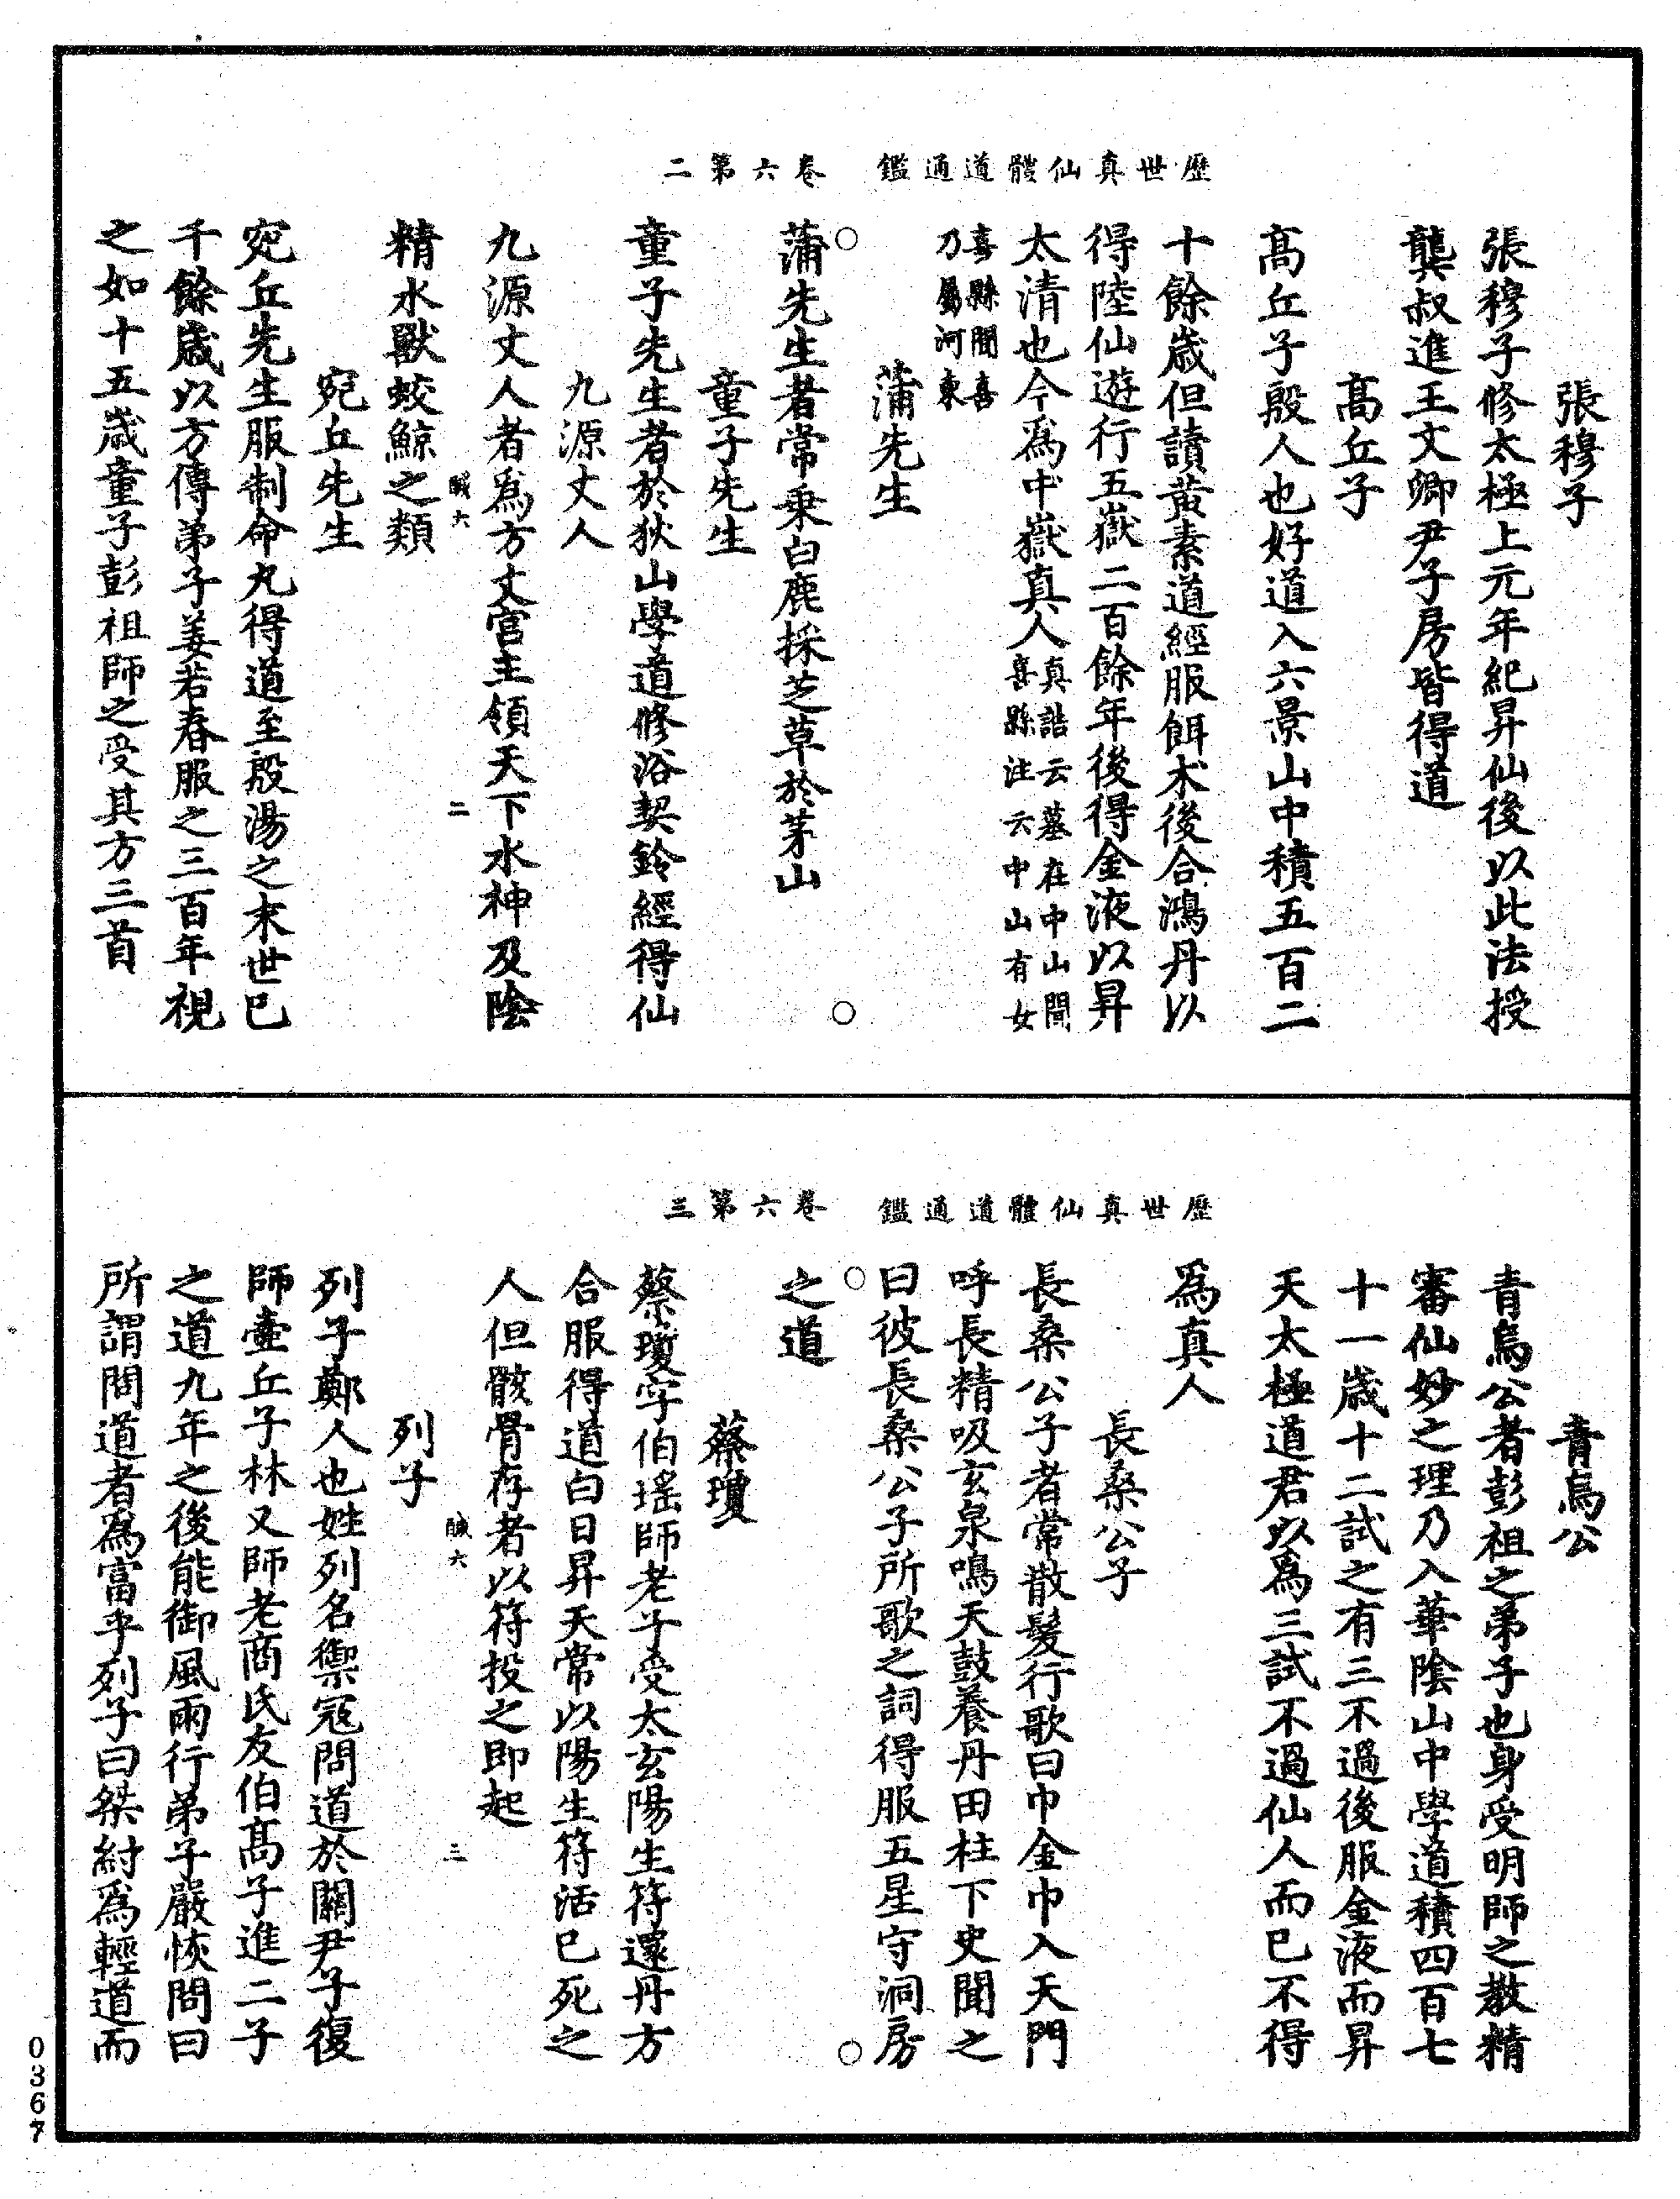 歷世真仙體道通鑑　卷六第二
張穆子
張穆子修太極上元年紀昇仙後以此法授
龔叔進王文卿尹子房皆得道
髙丘子
髙丘子殷人也好道入六景山中積五百二
十餘歲但讀黃素道經服餌术後合鴻丹以
得陸仙遊行五嶽二百餘年後得金液以昇
太清也今爲中嶽真人真誥云墓在中山聞喜縣注云中山有女
喜縣聞喜乃屬河東
蒲先生
○　○
蒲先生者常乗白鹿採芝草於茅山
童子先生
童子先生者於狄山學道修浴契鈴經得仙
九源丈人
九源丈人者爲方丈宮主領天下水神及陰
醎六　二
精水獸蛟鯨之類
宛丘先生
宛丘先生服制命丸得道至殷湯之末世巳
千餘歲以方傳弟子姜若春服之三百年視
之如十五歲童子彭祖師之受其方三首
歷世真仙體道通鑑　卷六第三
青烏公
青烏公者彭祖之弟子也身受明師之教精
審仙妙之理乃入華陰山中學道積四百七
十一歲十二試之有三不過後服金液而昇
天太極道君以爲三試不過仙人而巳不得
爲真人
長桑公子
長桑公子者常散髮行歌曰巾金巾入天門
呼長精吸玄泉鳴天鼓養丹田柱下史聞之
曰彼長桑公子所歌之詞得服五星守洞房
○　○
之道
蔡瓊
蔡瓊字伯瑤師老子受太玄陽生符還丹方
合服得道白日昇天常以陽生符活巳死之
人但骸骨存者以符投之即起
醎六　三
列子
列子鄭人也姓列名禦寇問道於關尹子復
師壷丘子林又師老商氏友伯髙子進二子
之道九年之後能御風而行弟子嚴恢問曰
所謂問道者爲富乎列子曰桀紂爲輕道而
0367